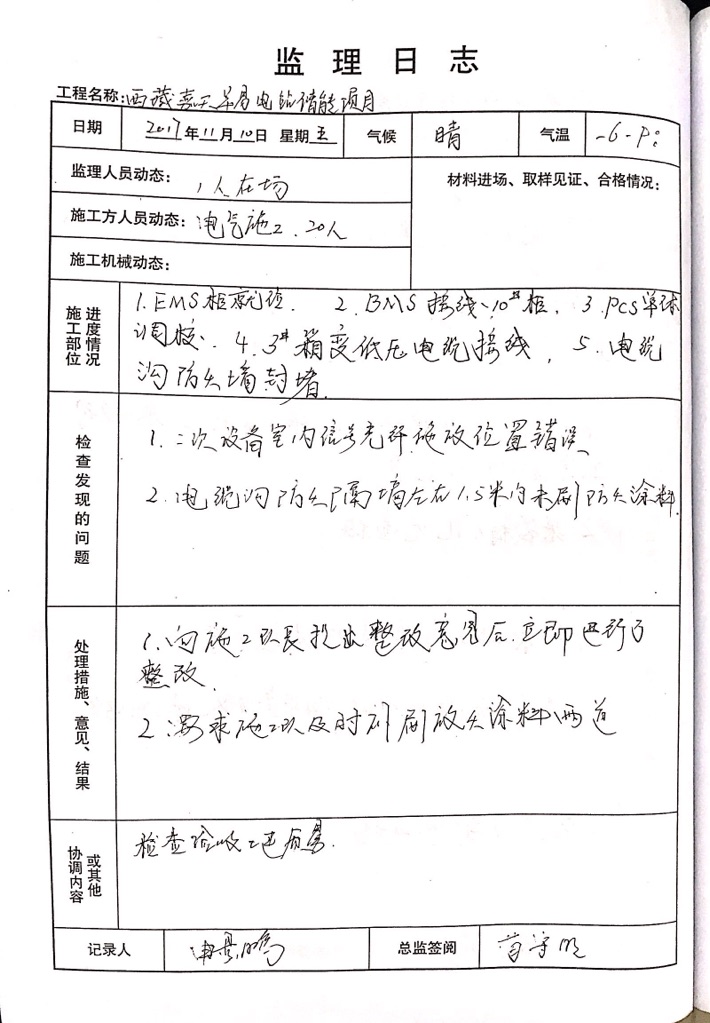 监理日志
工程名称:西藏嘉天羊易电站储能项目
日期 2017年11月10日 星期五 气候 晴 气温 -6-
监理人员动态: 1人在场
材料进场、取样见证、合格情况:
施工方人员动态: 电气施工、20人
施工机械动态:
施工部位 进度情况
1.EMS柜就位. 2.BMS接线、10#柜. 3.PCS单体
调校. 4.3#箱变低压电缆接线, 5.电缆
沟防火墙封堵.
检查发现的问题
1.二次设备室内信号光纤施放位置错误
2.电缆沟防火隔墙左右1.5米内未刷防火涂料.
处理措施、意见、结果
1.向施工队长提出整改意见后.立即进行了
整改.
2.要求施工队及时 刷放火涂料两道
协调内容 或其他
检查验收工艺质量.
记录人 总监签阅